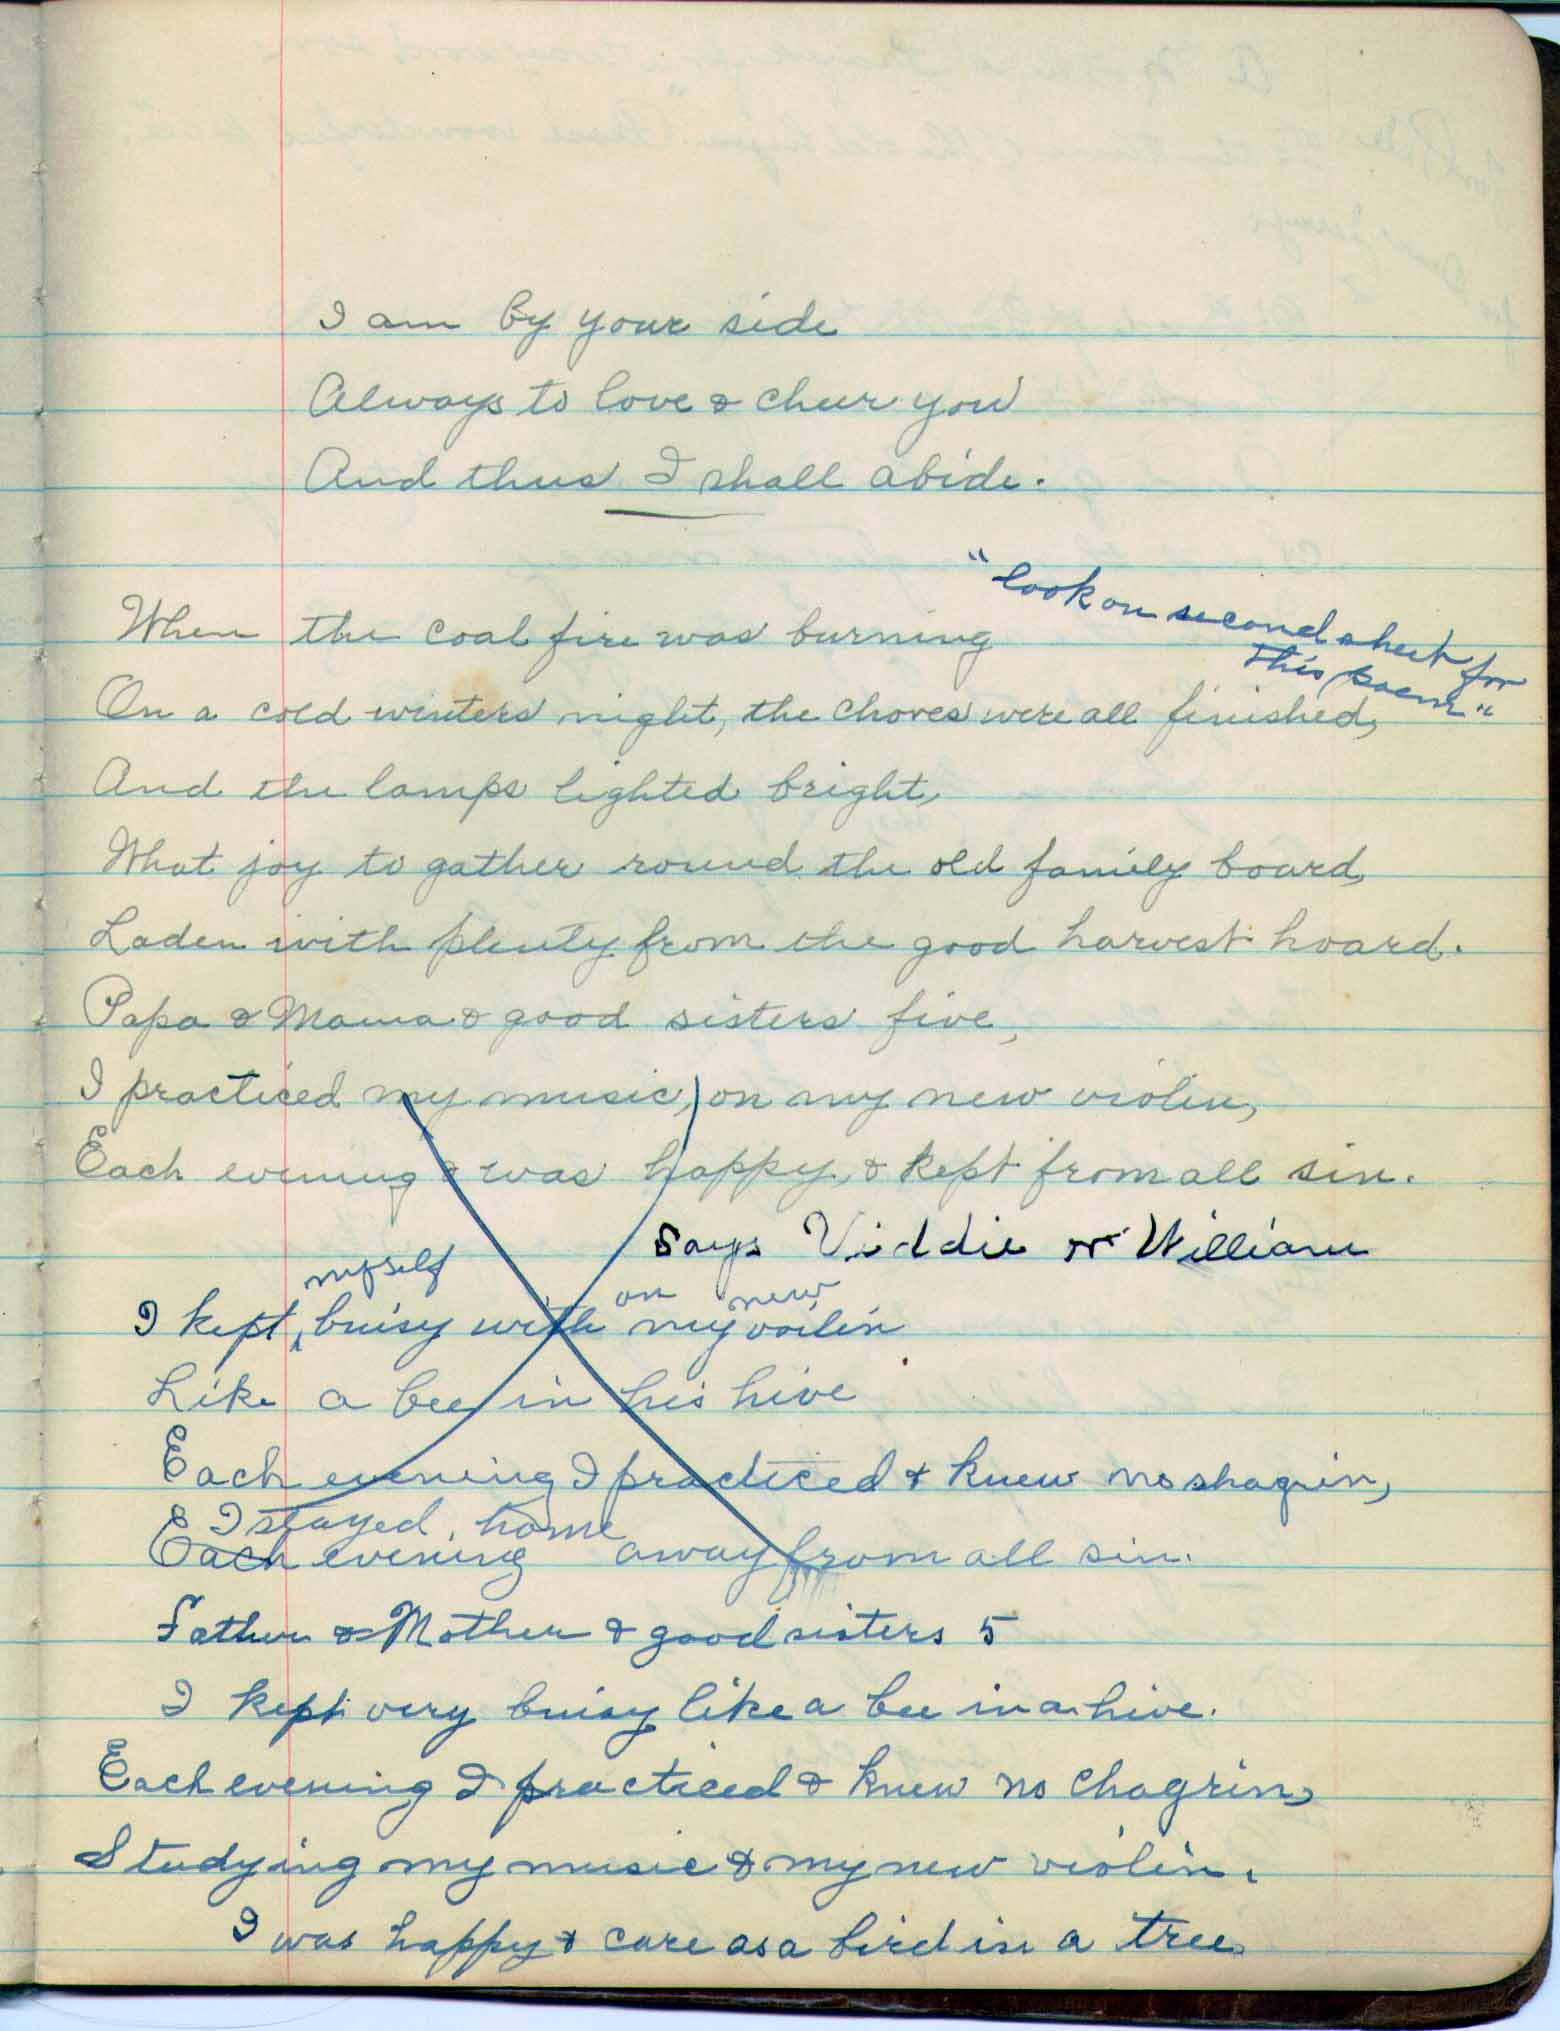 I am by your side
Always to love & cheer you
And thus I shall abide.
"look on second sheet for
this poem"
When the coal fire was burning
On a cold winters night, the chores were all finished,
And the lamps lighted bright,
What joy to gather round the old family board,
Laden with plenty from the good harvest hoard.
Papa & Mama & good sisters five,
I practiced my music, on my new violin,
Each evening & was happy, & kept from all sin.
Says Viddie or William
myself on new
I kept buisy with my voilin
Like a bee in his hive
Each evening I practiced & knew no shagrin,
I stayed home
Each evening away from all sin.
Father & Mother & good sisters 5
I kept very buisy like a bee in a hive.
Each evening I practiced & knew no chagrin,
Studying my music & my new violin.
I was happy & care as a bird in a tree